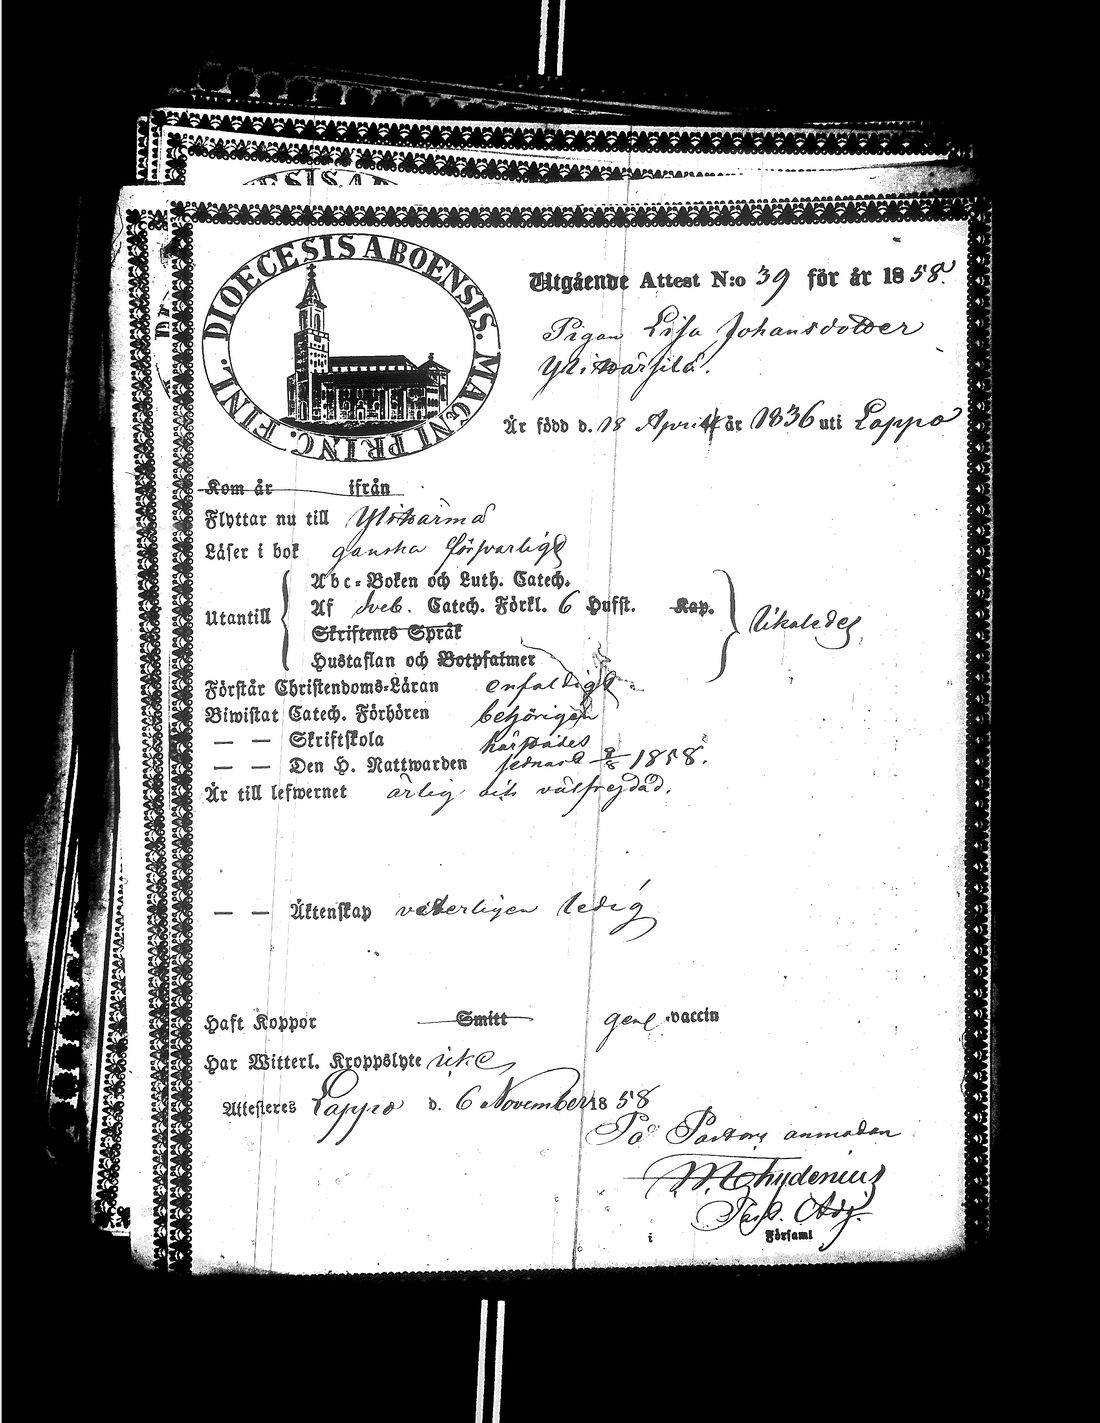 DIOECESIS ABOENSIS. MAGNI PRINC. FINL.
Utgående Attest N:o 39 för år 1858.
Pigan Lisa Johansdotter
Är född d. 18 April år 1836 uti Lappo
Kom år ifrån
Flyttar nu till Ylihärmä
Läser i bok ganska försvarligt
Abc-Boken och Luth. Catech.
Utantill Af Sveb. Catech. Förkl. 6 Hufst. Kap. likaledes
Skriftenes Språk
Hustaflan och Botpsalmer
Förstår Christendoms-Läran enfaldigt
Biwistat Catech. Förhören behörigen
— — Skriftskola härstädes
— — Den H. Nattwarden sednast 1858.
Är till lefwernet ärlig och välfrejdad.
— — Äktenskap veterligen ledig
Haft Koppor Smitt gene vaccin
Har Witterl. Kroppslyte icke
Attesteres Lappo d. 6 November 1858
På Pastors anmodan
Past. Adj.
i Församl